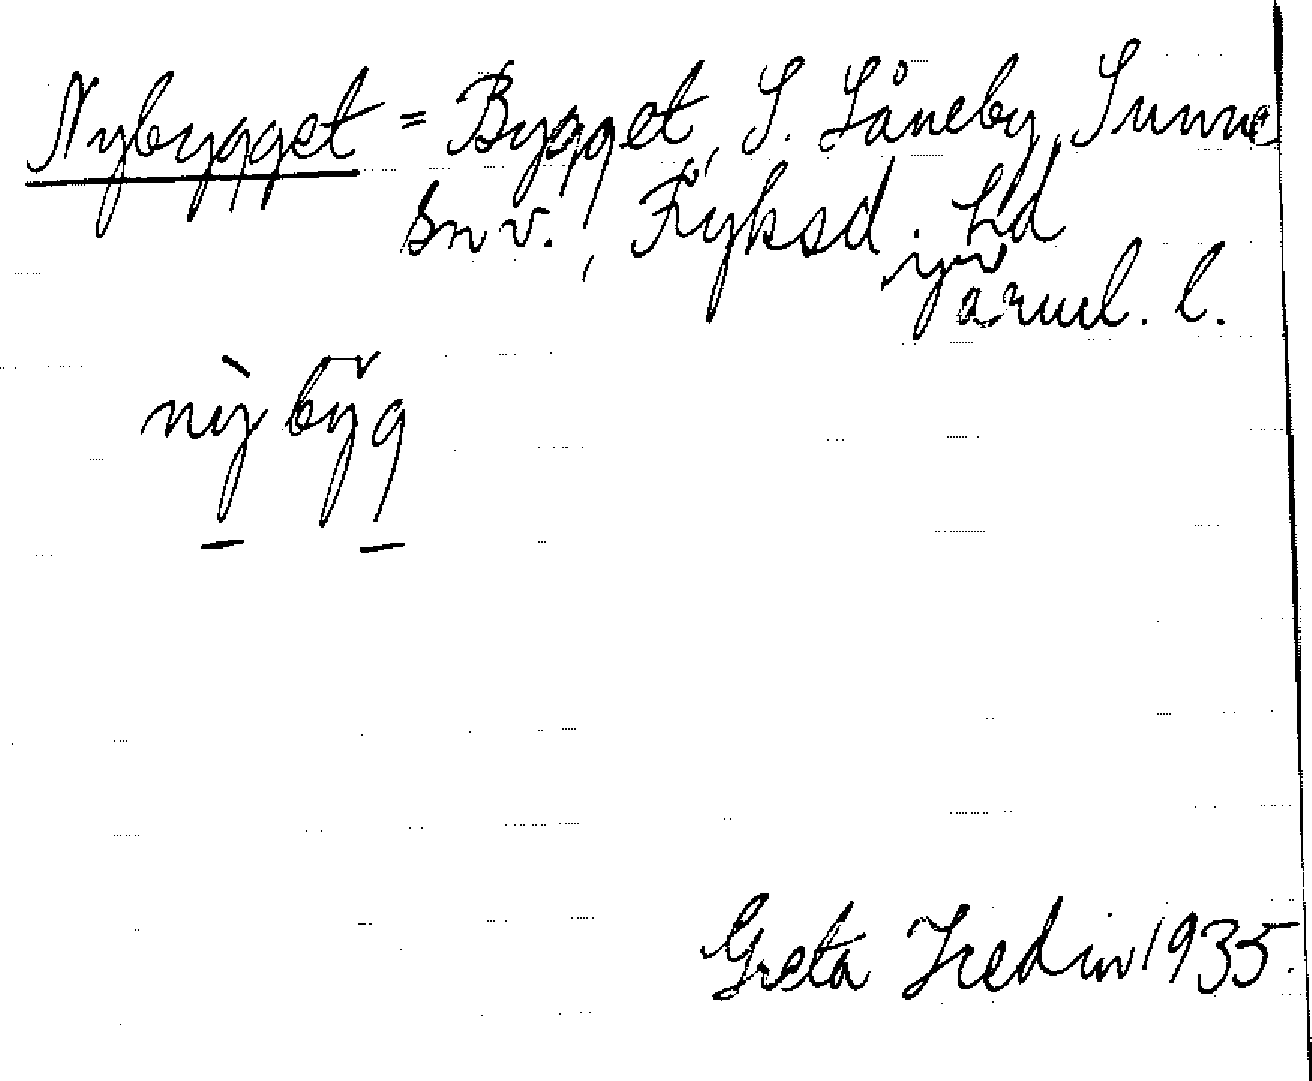 Nybygget = Bygget, S. Låneby, Sunne
sn v., Fryksd. hd
Värml. l.
nỳby̆g
Greta Hedin 1935.